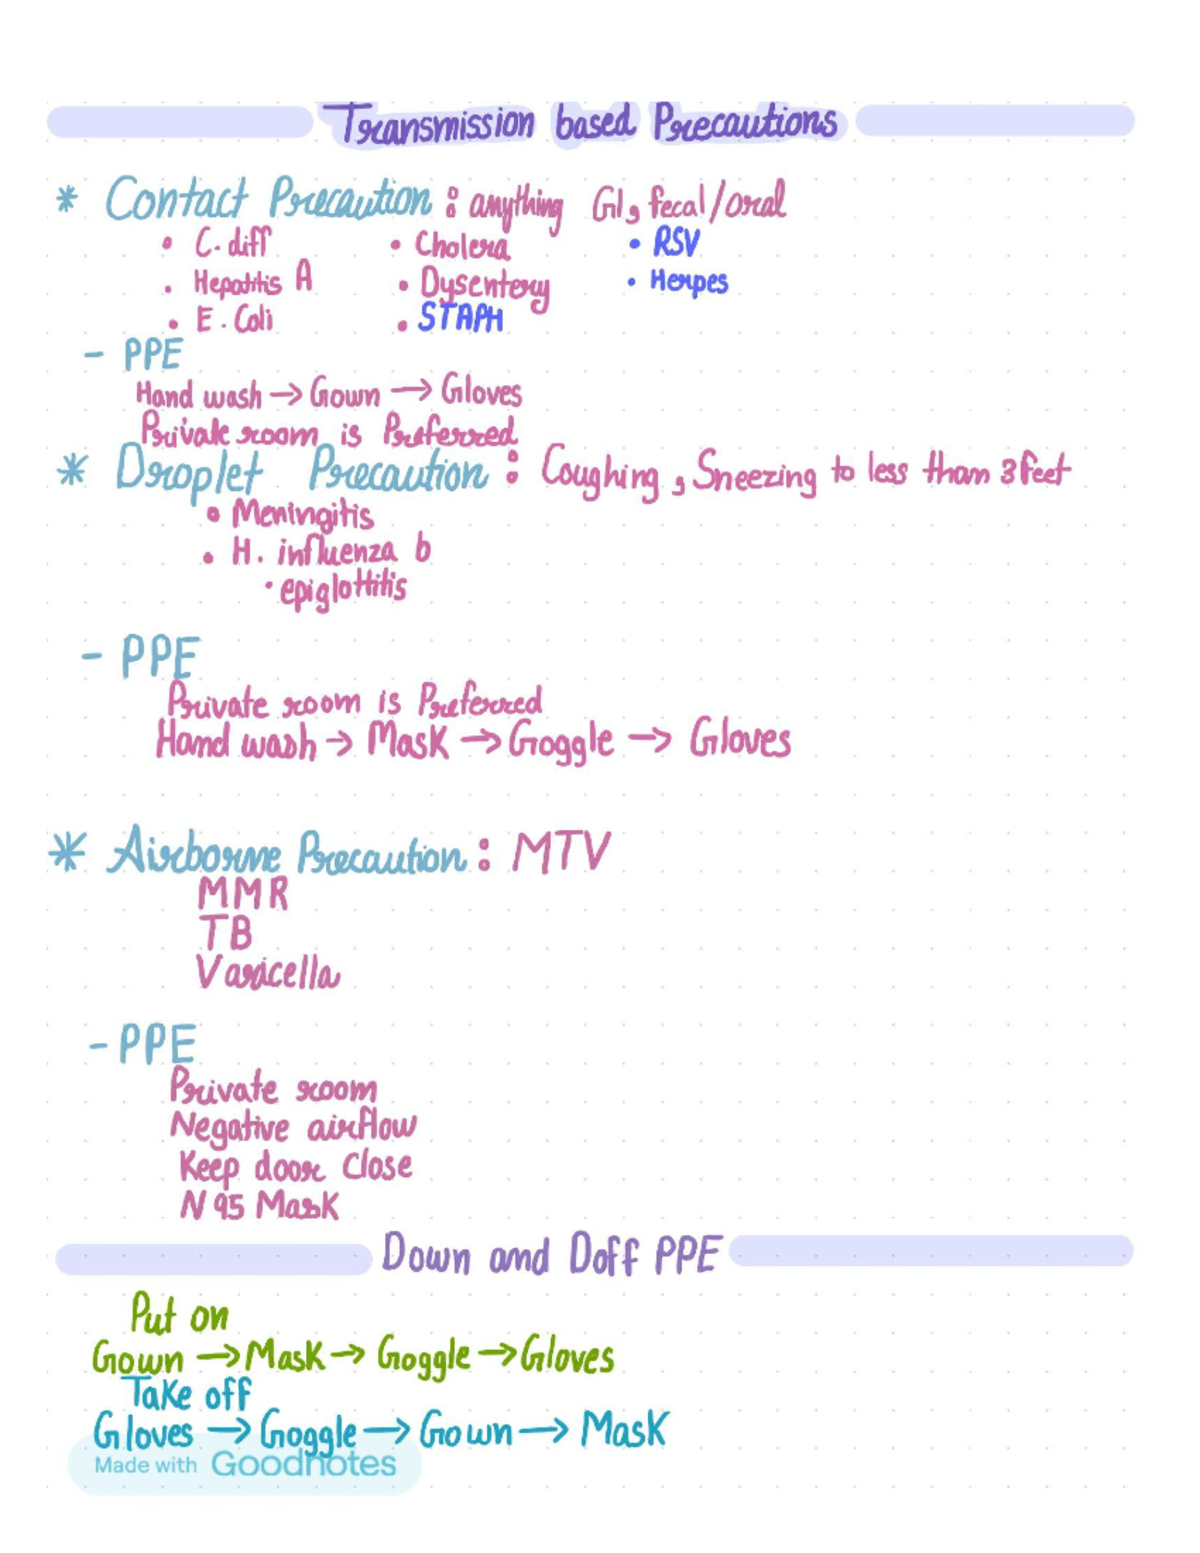 Transmission based Precautions
* Contact Precaution : anything GI, fecal/oral
• C. diff • Cholera • RSV
• Hepatitis A • Dysentery • Herpes
• E. Coli • STAPH
- PPE
Hand wash → Gown → Gloves
Private room is Preferred
* Droplet Precaution : Coughing, Sneezing to less than 3 feet
• Meningitis
• H. influenza b
• epiglottitis
- PPE
Private room is Preferred
Hand wash → Mask → Goggle → Gloves
* Airborne Precaution : MTV
MMR
TB
Varicella
- PPE
Private room
Negative airflow
Keep door Close
N 95 Mask
Down and Doff PPE
Put on
Gown → Mask → Goggle → Gloves
Take off
Gloves → Goggle → Gown → Mask
Made with Goodnotes